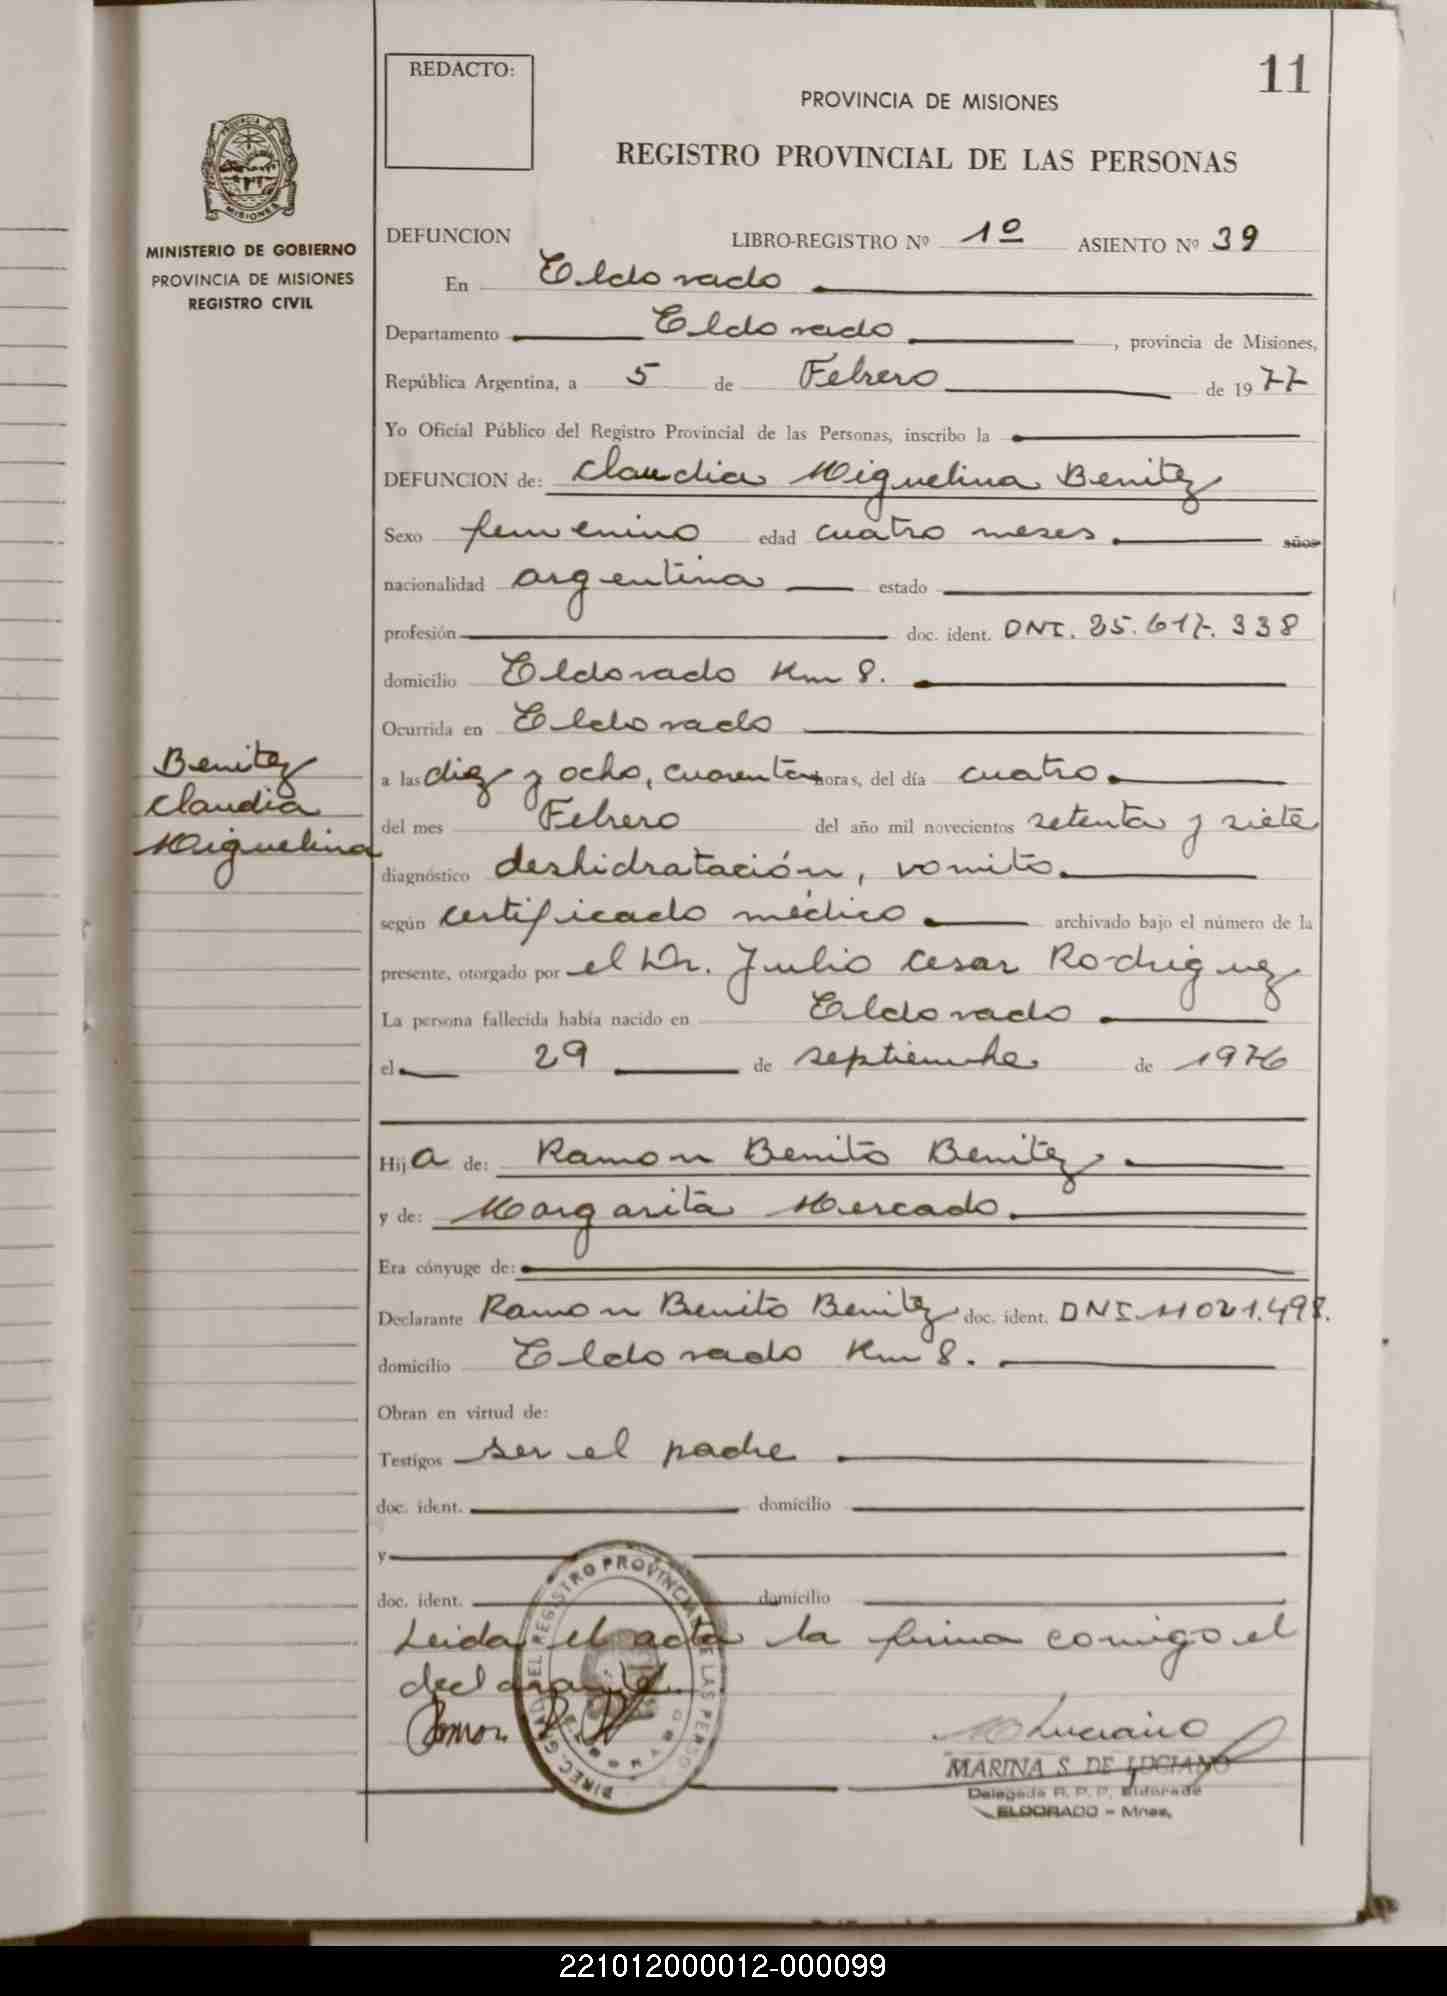 11
REDACTO:
PROVINCIA DE MISIONES
REGISTRO PROVINCIAL DE LAS PERSONAS
PROVINCIA DE
MISIONES
MINISTERIO DE GOBIERNO
PROVINCIA DE MISIONES
REGISTRO CIVIL
DEFUNCION LIBRO-REGISTRO Nº 1º ASIENTO Nº 39
En Eldorado
Departamento Eldorado, provincia de Misiones,
República Argentina, a 5 de Febrero de 1977
Yo Oficial Público del Registro Provincial de las Personas, inscribo la
DEFUNCION de: Claudia Miguelina Benitez
Sexo femenino edad cuatro meses años
nacionalidad argentina estado
profesión doc. ident. DNI. 25.617.338
domicilio Eldorado Km 8.
Ocurrida en Eldorado
Benitez
Claudia
Miguelina
a las diez y ocho, cuarenta horas, del día cuatro
del mes Febrero del año mil novecientos setenta y siete
diagnóstico deshidratación, vomito.
según certificado médico archivado bajo el número de la
presente, otorgado por el Dr. Julio Cesar Rodriguez
La persona fallecida había nacido en Eldorado
el 29 de septiembre de 1976
Hija de: Ramon Benito Benitez
y de: Margarita Mercado
Era cónyuge de:
Declarante Ramon Benito Benitez doc. ident. DNI. 11021.498.
domicilio Eldorado Km 8.
Obran en virtud de:
Testigos ser el padre
doc. ident. domicilio
y
doc. ident. domicilio
Leida el acta la firma comigo el
declarante.
Ramon
DIREC. GRAL DEL REGISTRO PROVINCIAL DE LAS PERSO
M Luciano
MARINA S. DE LUCIANO
Delegada R. P. P. Eldorado
ELDORADO - Mnes.
221012000012-000099